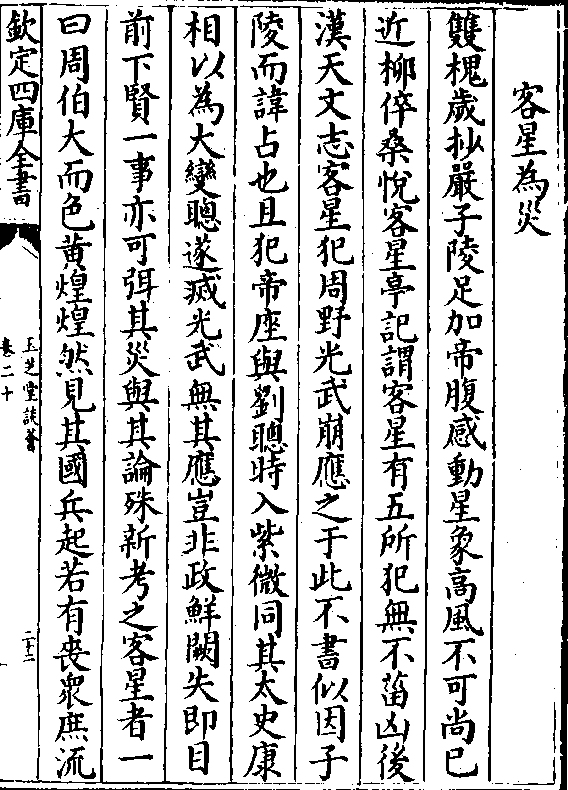 客星為災
雙槐歲抄嚴子陵足加帝腹感動星象高風不可尚已
近柳倅桑悅客星亭記謂客星有五所犯無不菑凶後
漢天文志客星犯周野光武崩應之于此不書似因子
陵而諱占也且犯帝座與劉聰時入紫微同其太史康
相以為大變聰遂滅光武無其應豈非政鮮闕失即目
前下賢一事亦可弭其災與其論殊新考之客星者一
曰周伯大而色黃煌煌然見其國兵起若有喪衆庶流
欽定四庫全書
玉芝堂談薈
卷二十
二十二